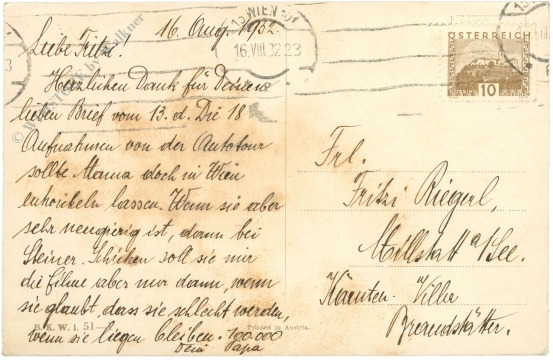 16. Aug. 1932.
Liebe Fritzi!
Herzlichen Dank für Deinen
lieben Brief vom 13. d. Die 18
Aufnahmen von der Autotour
sollte Mama doch in Wien
entwickeln lassen. Wenn sie aber
sehr neugierig ist, dann bei
Steiner. Schicken soll sie mir
die Filme aber nur dann, wenn
sie glaubt, dass sie schlecht werden,
wenn sie liegen bleiben. 100.000
Dein Papa
B.K.W.I. 51
Printed in Austria.
WIEN 101
16.VIII.32 23
ÖSTERREICH
10
Frl.
Fritzi Riegerl,
Millstatt a/See.
Kärnten - Villa
Brandstätter.